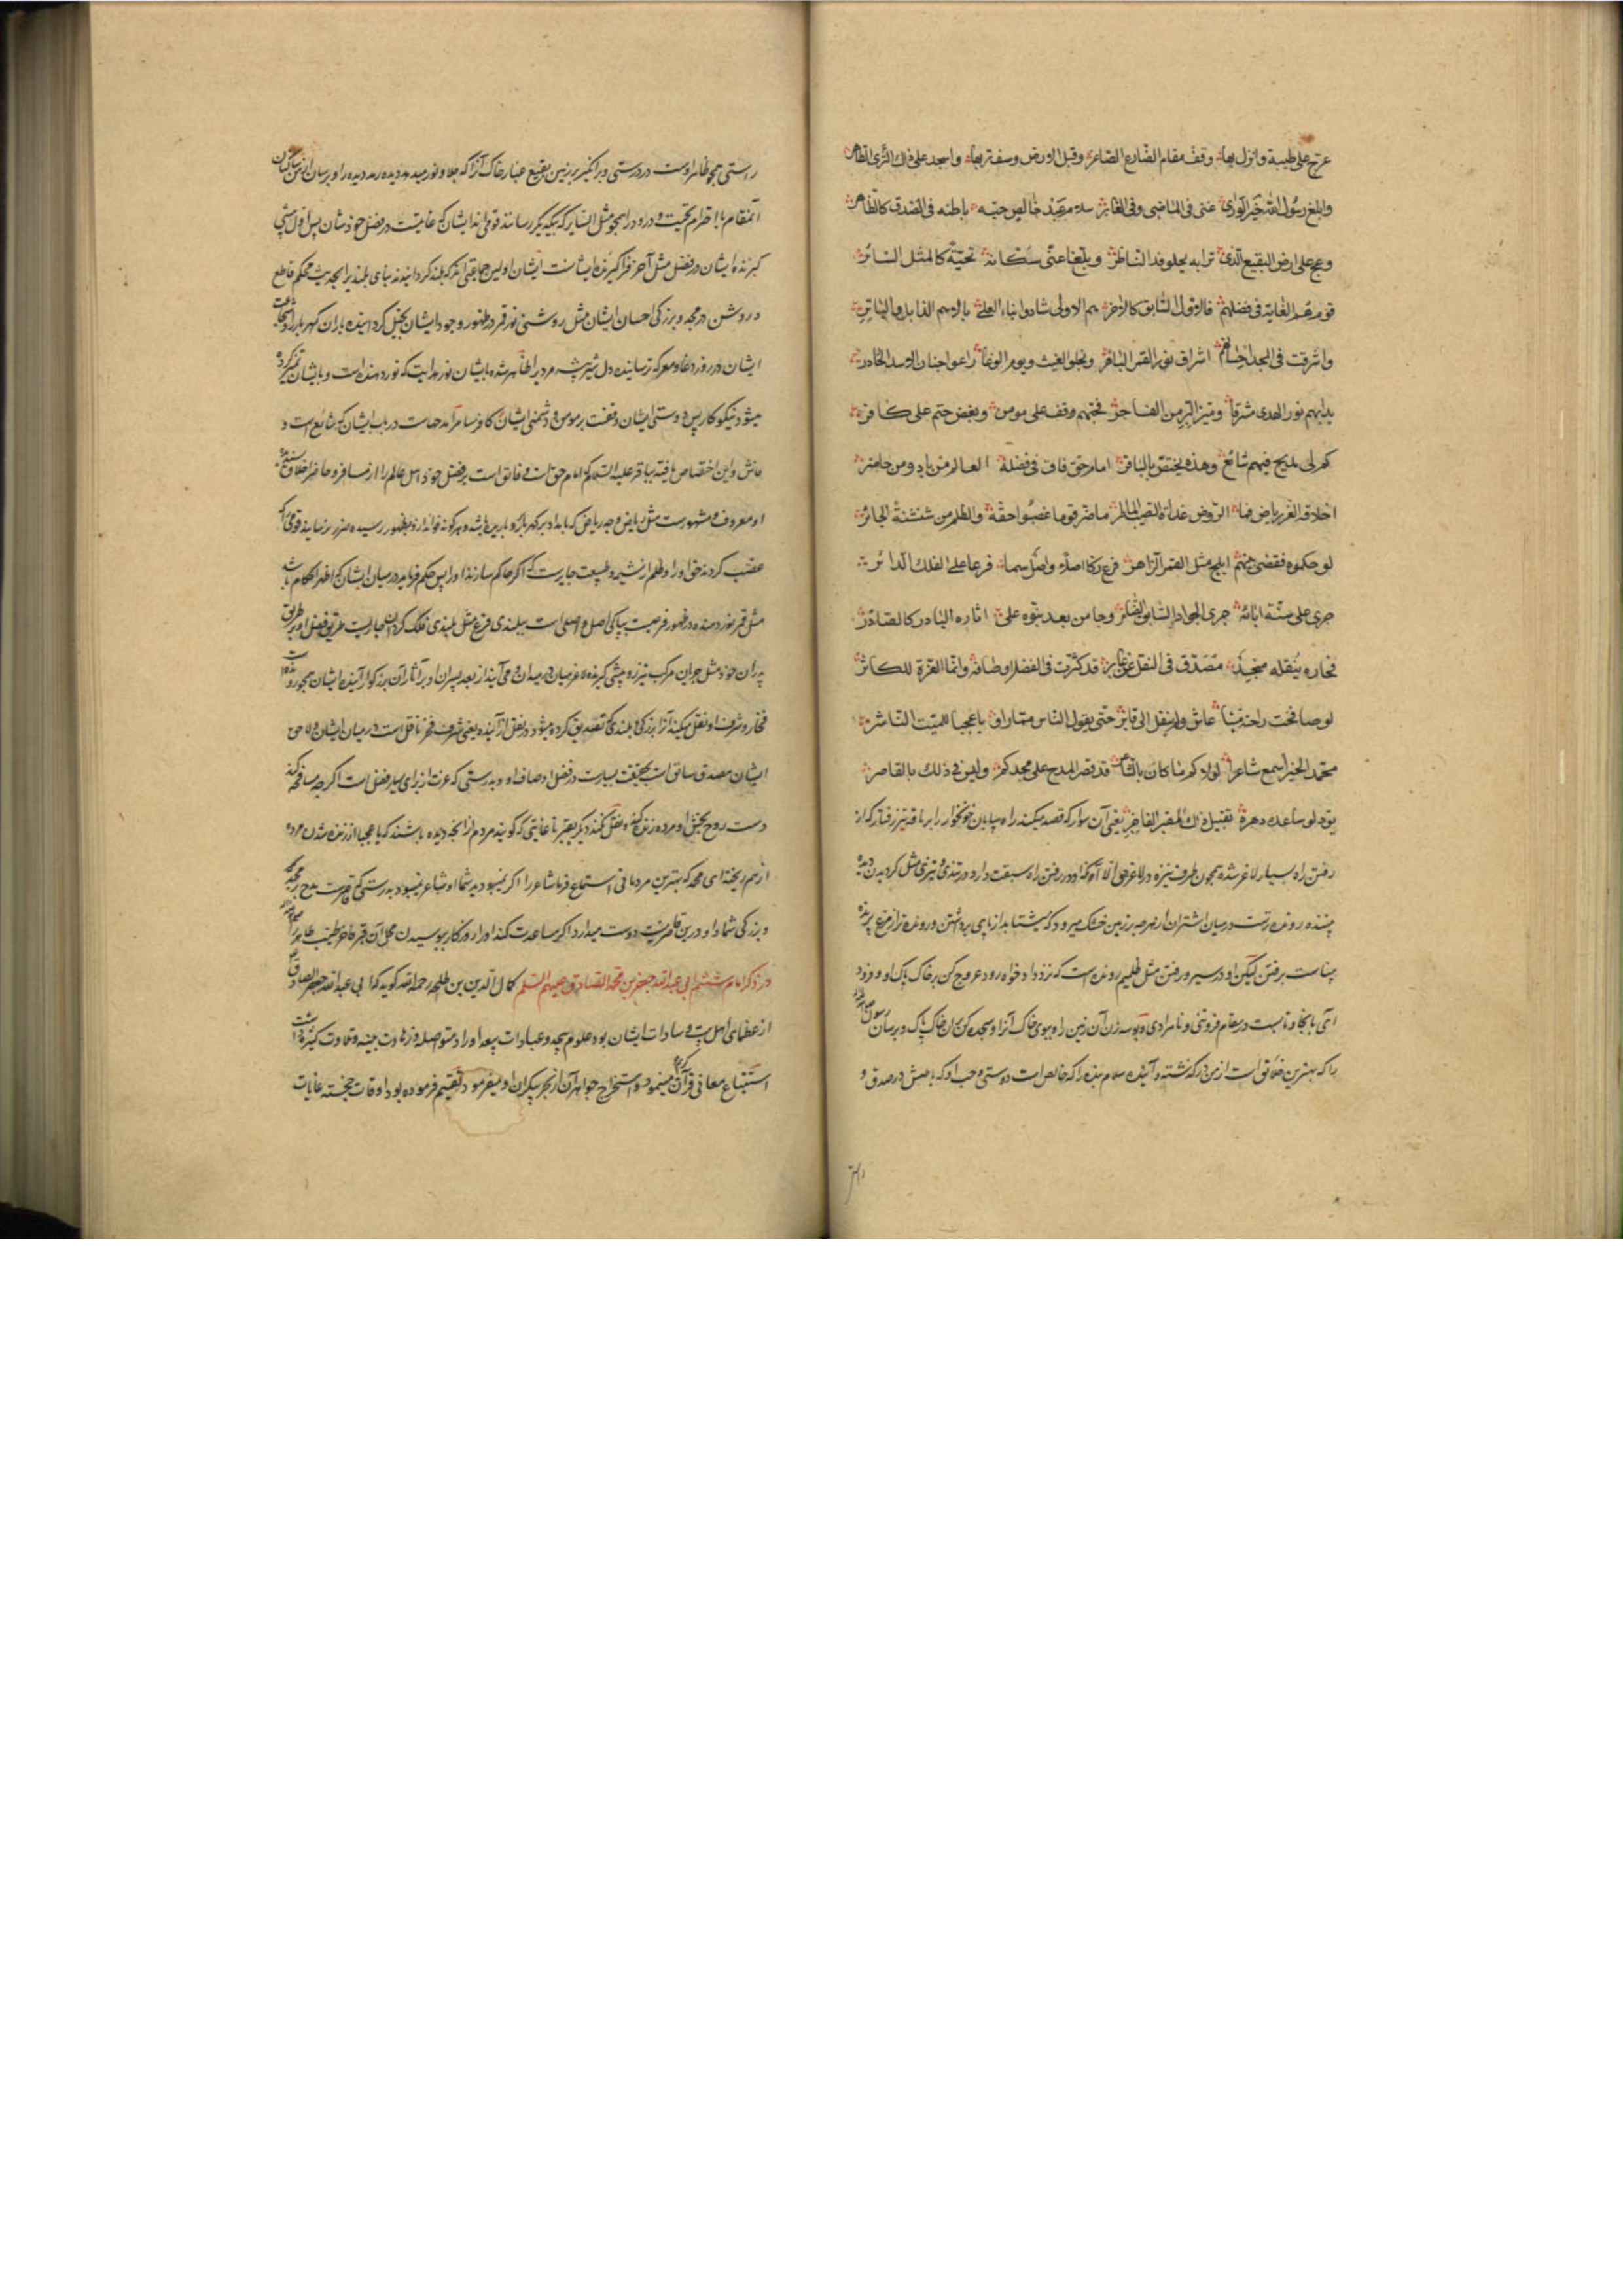 عرج علی طیبة وانزل بها وقف مقام الضارع الصاغر وقبل الارض وسف تربها واسجد علی ذاک الثری الطاهر
وابلغ رسول الله خیر الوری عنی فی الماضی وفی الغابر سلام عبد خالص حبه باطنه فی الصدق کالظاهر
وعج علی ارض البقیع الذی ترابه یجلو قذا الناظر وبلغا عنی سکانه تحیة کالمثل السائر
قوم هم الغایة فی فضلهم فالاول السابق کالآخر هم الاولی شادوا بناء العلی بالاسم الذابل والباتر
واشرقت فی المجد احسابهم اشراق نور القمر الباهر وبخلوا الغیث ویوم الوغا راعوا جنان الاسد الخادر
بدا بهم نور الهدی مشرقا ومیز البر من الفاجر فحبهم وقف علی مومن وبغض حتم علی کافر
کم لی مدیح فیهم شائع وهذه یختص بالباقر امام حق فاق فی فضله العالم من باد ومن حاضر
اخلاقه الغر ریاض فما الروض غداة الصیب الماطر ما ضر قوما غصبوا حقه والظلم من شنشنة الجائر
لو حکموه فقضی بینهم ابلج مثل القمر الزاهر فرع زکا اصلا واصل سما فرعا علی الفلک الدائر
جری علی سنة ابائه جری الجواد السابق الضامر وجا من بعد بنوه علی اثاره الوارد کالصادر
فخاره ینقله منجد مصدق فی النقل عن غایر قد کثرت فی الفضل اوصافه وانما العزة للکاثر
لو صافحت راحته میتا عاش ولم ینقل الی قابر حتی یقول الناس مما راوا یا عجبا للمیت الناشر
محمد الخیر اسمع شاعرا لولاکم ما کان بالشاعر قد قصر المدح علی مجدکم ولیس فی ذلک بالقاصر
یود لو ساعده دهره تقبیل ذاک المقبر الفاخر یعنی آن سوار که قصد میکند راه بیابان خونخوار را بر ناقه تیز رفتار که از
رفتن راه بسیار لاغر شده همچون طرف نیزه در لاغری الا آنکه او در رفتن راه سبقت دارد در تندی و تیزی مثل گردیدن دیده
بیننده رونده است در میان اشتران از هرچه بر زمین خشک میرود که میشتابد از پای برداشتن و رونده تر از مرغ پرنده
بیناست برفتن لیکن او در سیر و رفتن مثل ظلیم رونده است که نزد داد خواه رود عروج کن بر خاک پاک او و فرود
آی بانجا و بایست در مقام فروتنی و نامرادی و بوسه زن آن زمین را و ببوی خاک آنرا و سجده کن بران خاک پاک و برسان رسول
را که بهترین خلائق است از من در گذشته و آینده سلام بنده را که خالص است دوستی و حب او که باطنش در صدق و
راستی همچو ظاهر اوست در درستی و بر انگیز بر زمین بقیع غبار خاک آنرا که جلا و نور میدهد دیده رمد دیده را و برسان از من ساکنان
آنمقام با احترام تحیت و درود را همچو مثل السایر که بیکدیگر رسانند قومی اند ایشان که غایت در فضل خود شان پس اول پیشی
گیرنده ایشان در فضل مثل آخر فرا گیرنده ایشانست ایشان اولین جماعتی اند که بلند گردانیدند بنای بلندی را بحدیث محکم قاطع
و روشن در مجد و بزرگی احسان ایشان مثل روشنی نور قمر در ظهور وجود ایشان بخیل گرداننده باران گهربار را و شجاعت
ایشان در روز دغا و معرکه ترساینده دل شیر بیشه مردیرا ظاهر شده بایشان نور هدایت که نور دهنده است و بایشان تمیز کرده
میشود نیکوکار پس دوستی ایشان وقفست بر مومن و دشمنی ایشان کافر را مر آمد حماست در باب ایشان که شایع است و
فاش و این اختصاص یافته بباقر علیه السلام که امام حق است و فائق است بر فضل خود اهل عالم را از مسافر و حاضر اخلاق پسندیده
او معروف و مشهورست مثل ریاض و چه ریاض که بامداد ابر گهربار برو باریده باشد
غصب کردند حق او را و ظلم از شیمه و طبیعت جایرست که اگر حاکم سازند او را پس حکم فرماید در میان ایشان که اظهر احکام باشد
مثل قمر نور دهنده در ظهور فرعیست بپاکی اصل و اصلی است ببلندی فرع مثل بلندی فلک گردان جاریست طریق فضل او بر طریق
پدران خود مثل جریان مرکب تیزرو پیشی گیرنده لاغر میان در میدان و می آیند از بعد پسران او بر آثار آن بزرگوار
فخار و شرف او نقل میکند آنرا بزرگی و بلندی که تصدیق کرده میشود در نقل از آینده یعنی شرف و فخر ناقل است در میان ایشان ولاحق
ایشان مصدق سابق است بحقیقت بسیارست در فضل اوصاف او و بدرستی که عزت از برای بسیار فضل است اگرچه مصافحه کند
دست روح بخش او مرده زنده گردد و نقل نکنند دیگر بقبر تا غایتی که گویند مردم از آنچه دیده باشند که یا عجبا از زنده شدن مرده
از هم ریخته ای محمد که بهترین مردمانی استماع فرما شاعر را اگر نمیبودید شما او شاعر نمیبود بدرستی که قاصرست مدح بر مجد
و بزرگی شما و او درین قاصر نیست دوست میدارد اگر مساعدت کند او را روزگار ببوسیدن محل آن قبر فاخر طیب طاهر را
در ذکر امام ششم ابی عبد الله جعفر بن محمد الصادق علیهم السلم کمال الدین بن طلحه رحمه الله گوید که ابی عبد الله جعفر الصادق
از عظمای اهل بیت و سادات ایشان بود علوم بیحد و عبادات بیعد و اوراد متواصله و زهادت بینه و تلاوت کثیره داشت
استتباع معانی قرآن کریم مینمود و استخراج جواهر آن از بحر بیکران او میفرمود و تقسیم فرموده بود اوقات خجسته غایات